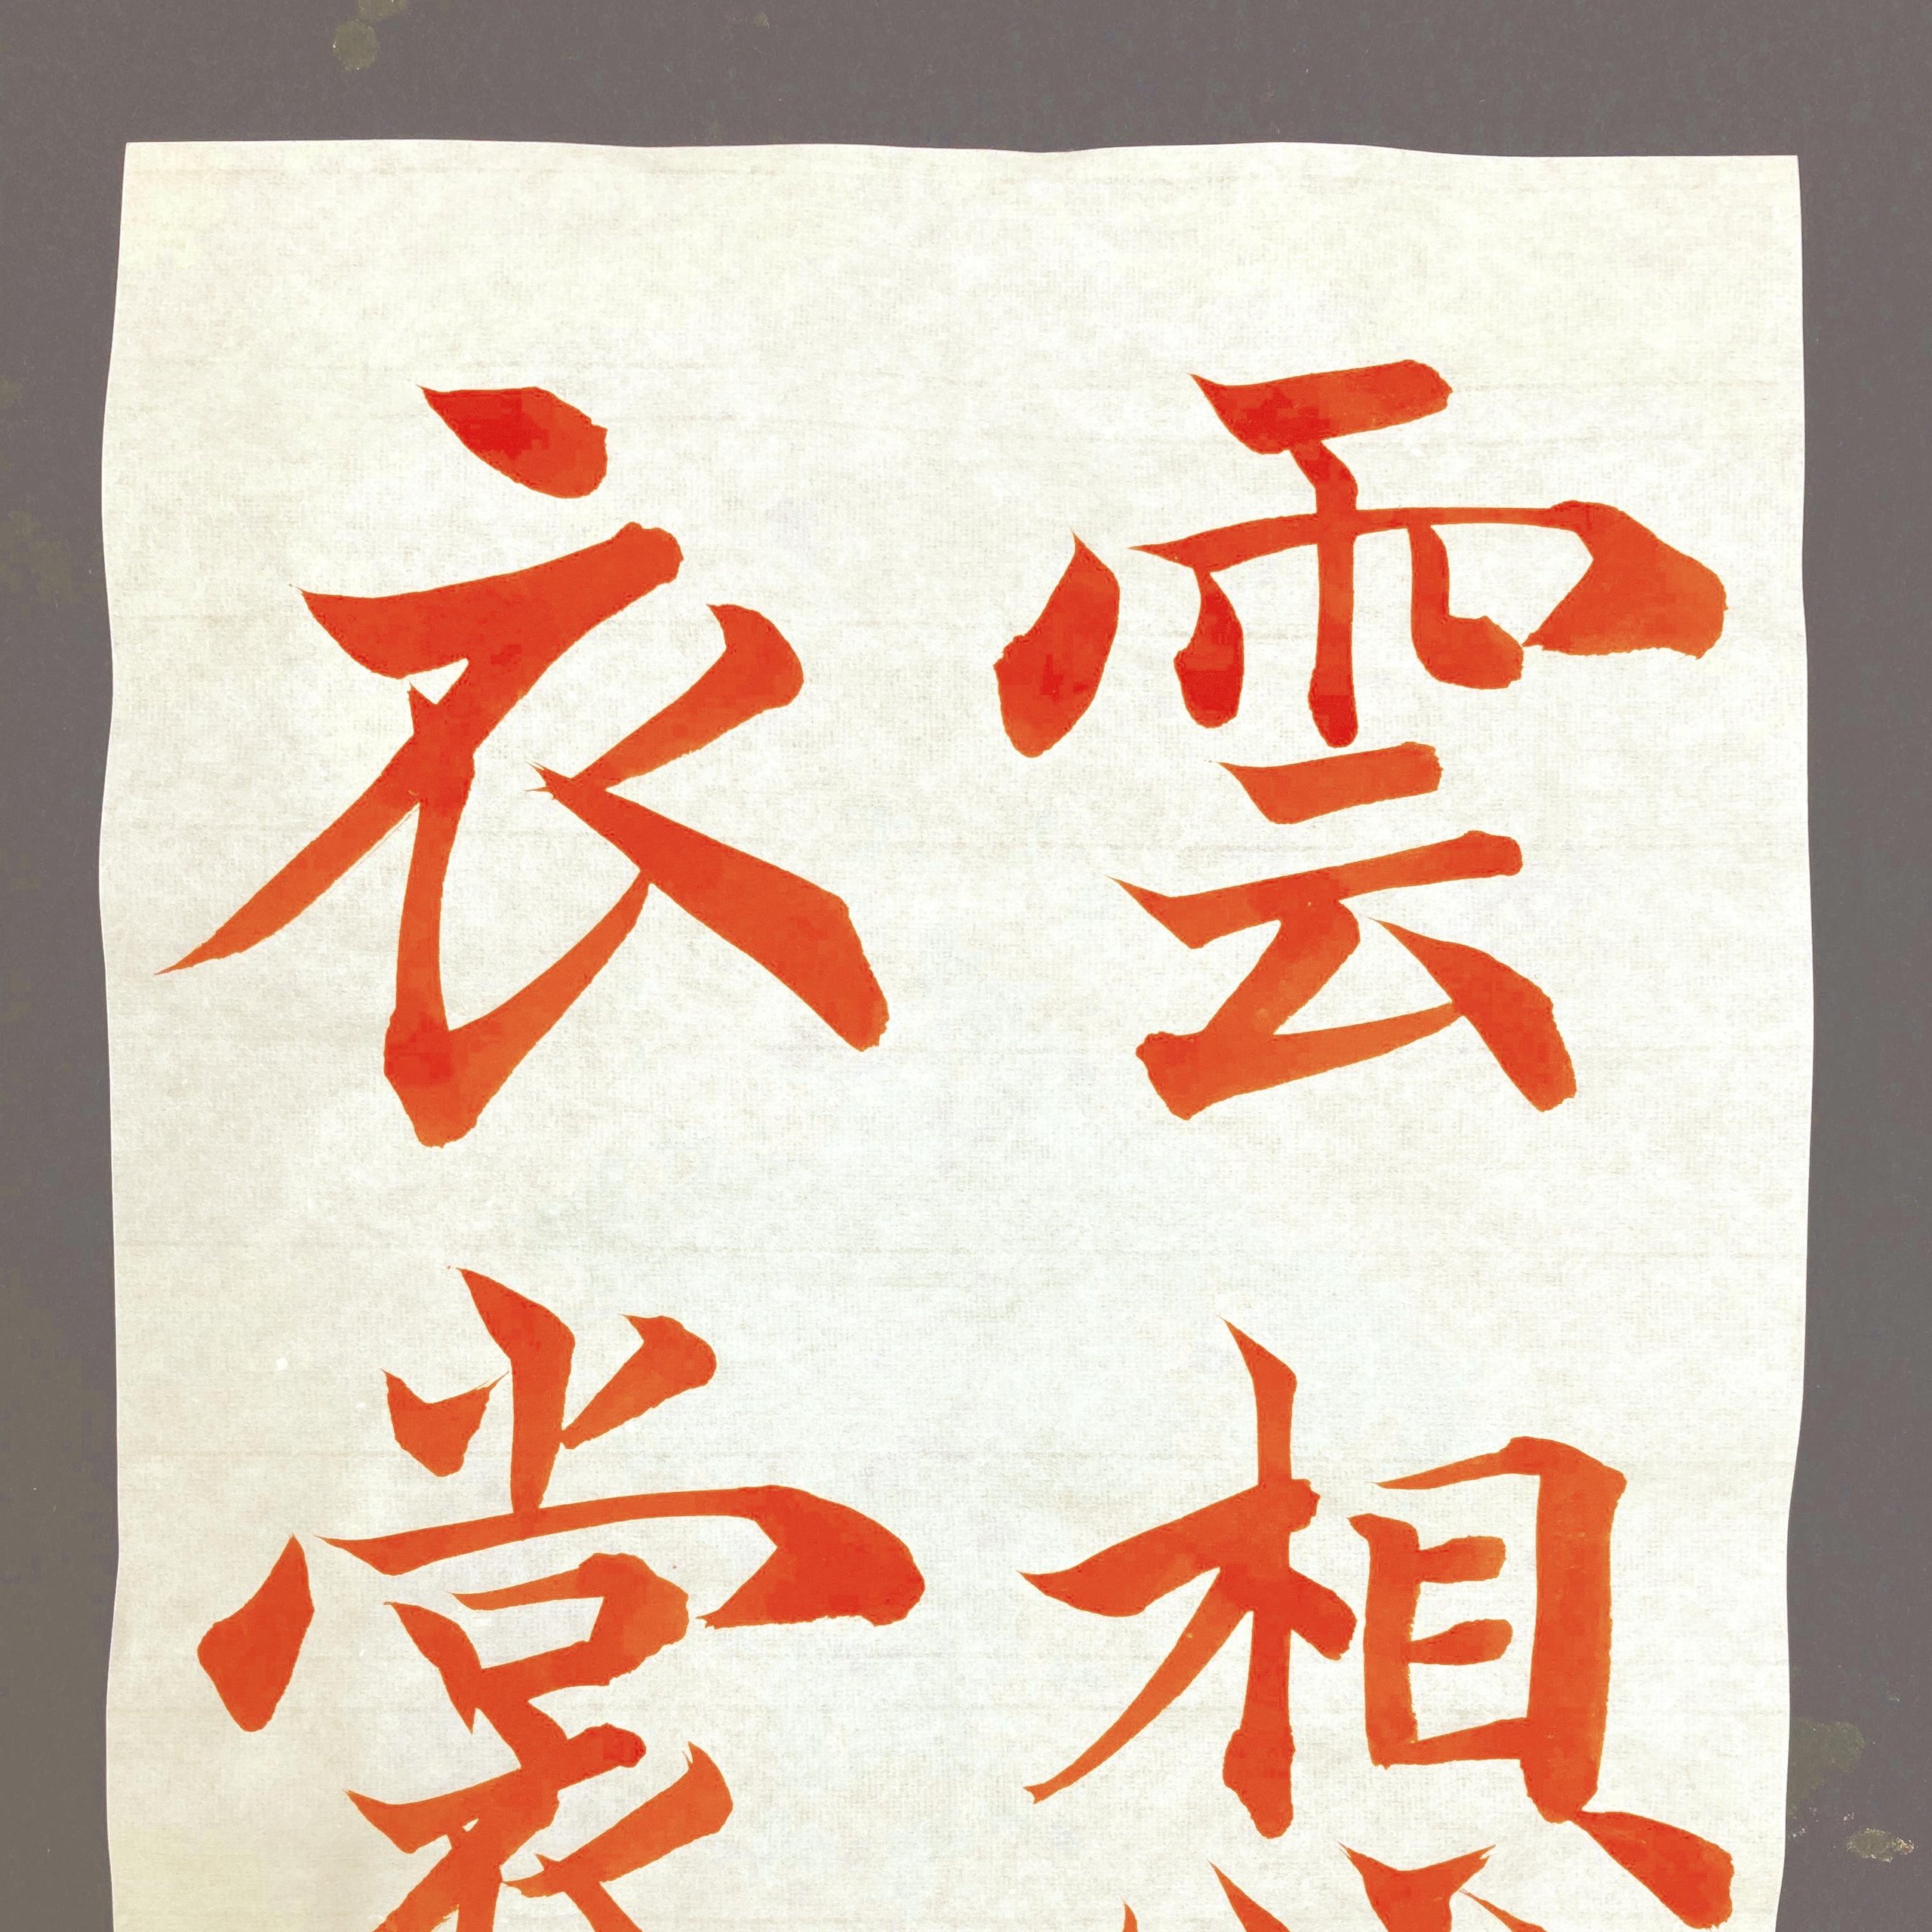 雲想
衣裳